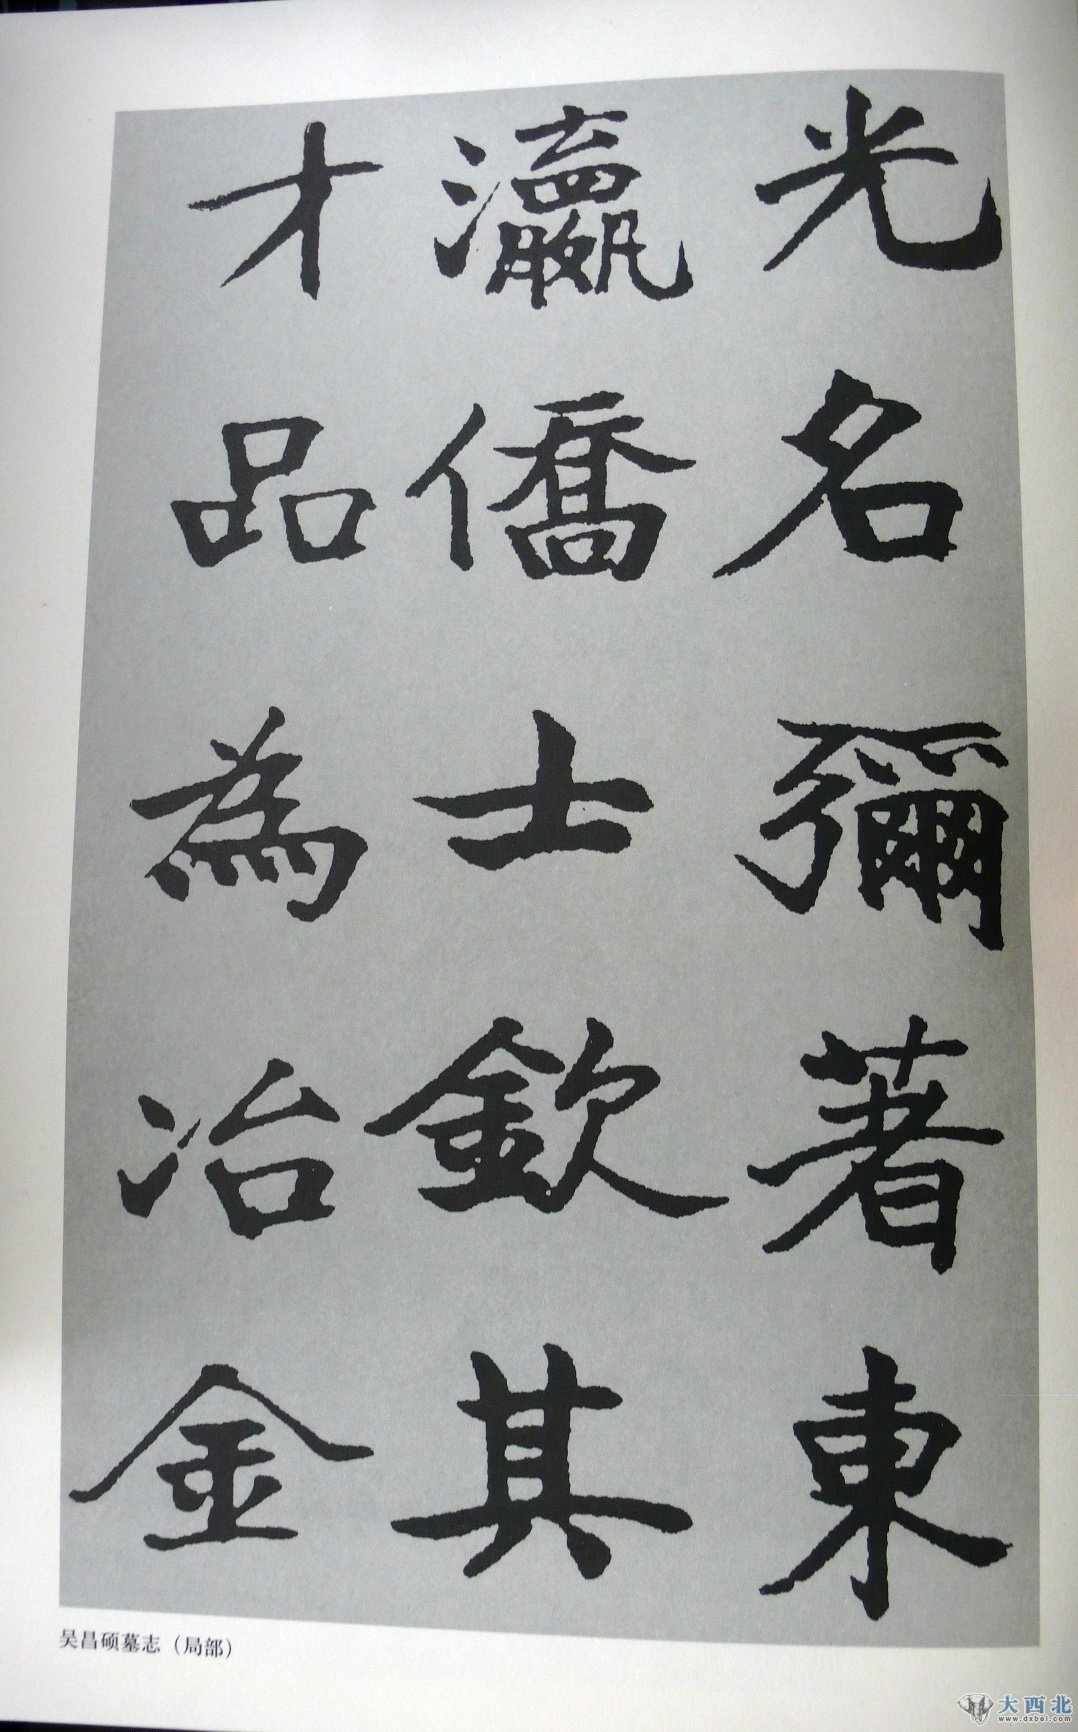 光名彌著東
瀛僑士欽其
才品為冶金
吴昌硕墓志（局部）
大西北
www.dxbei.com